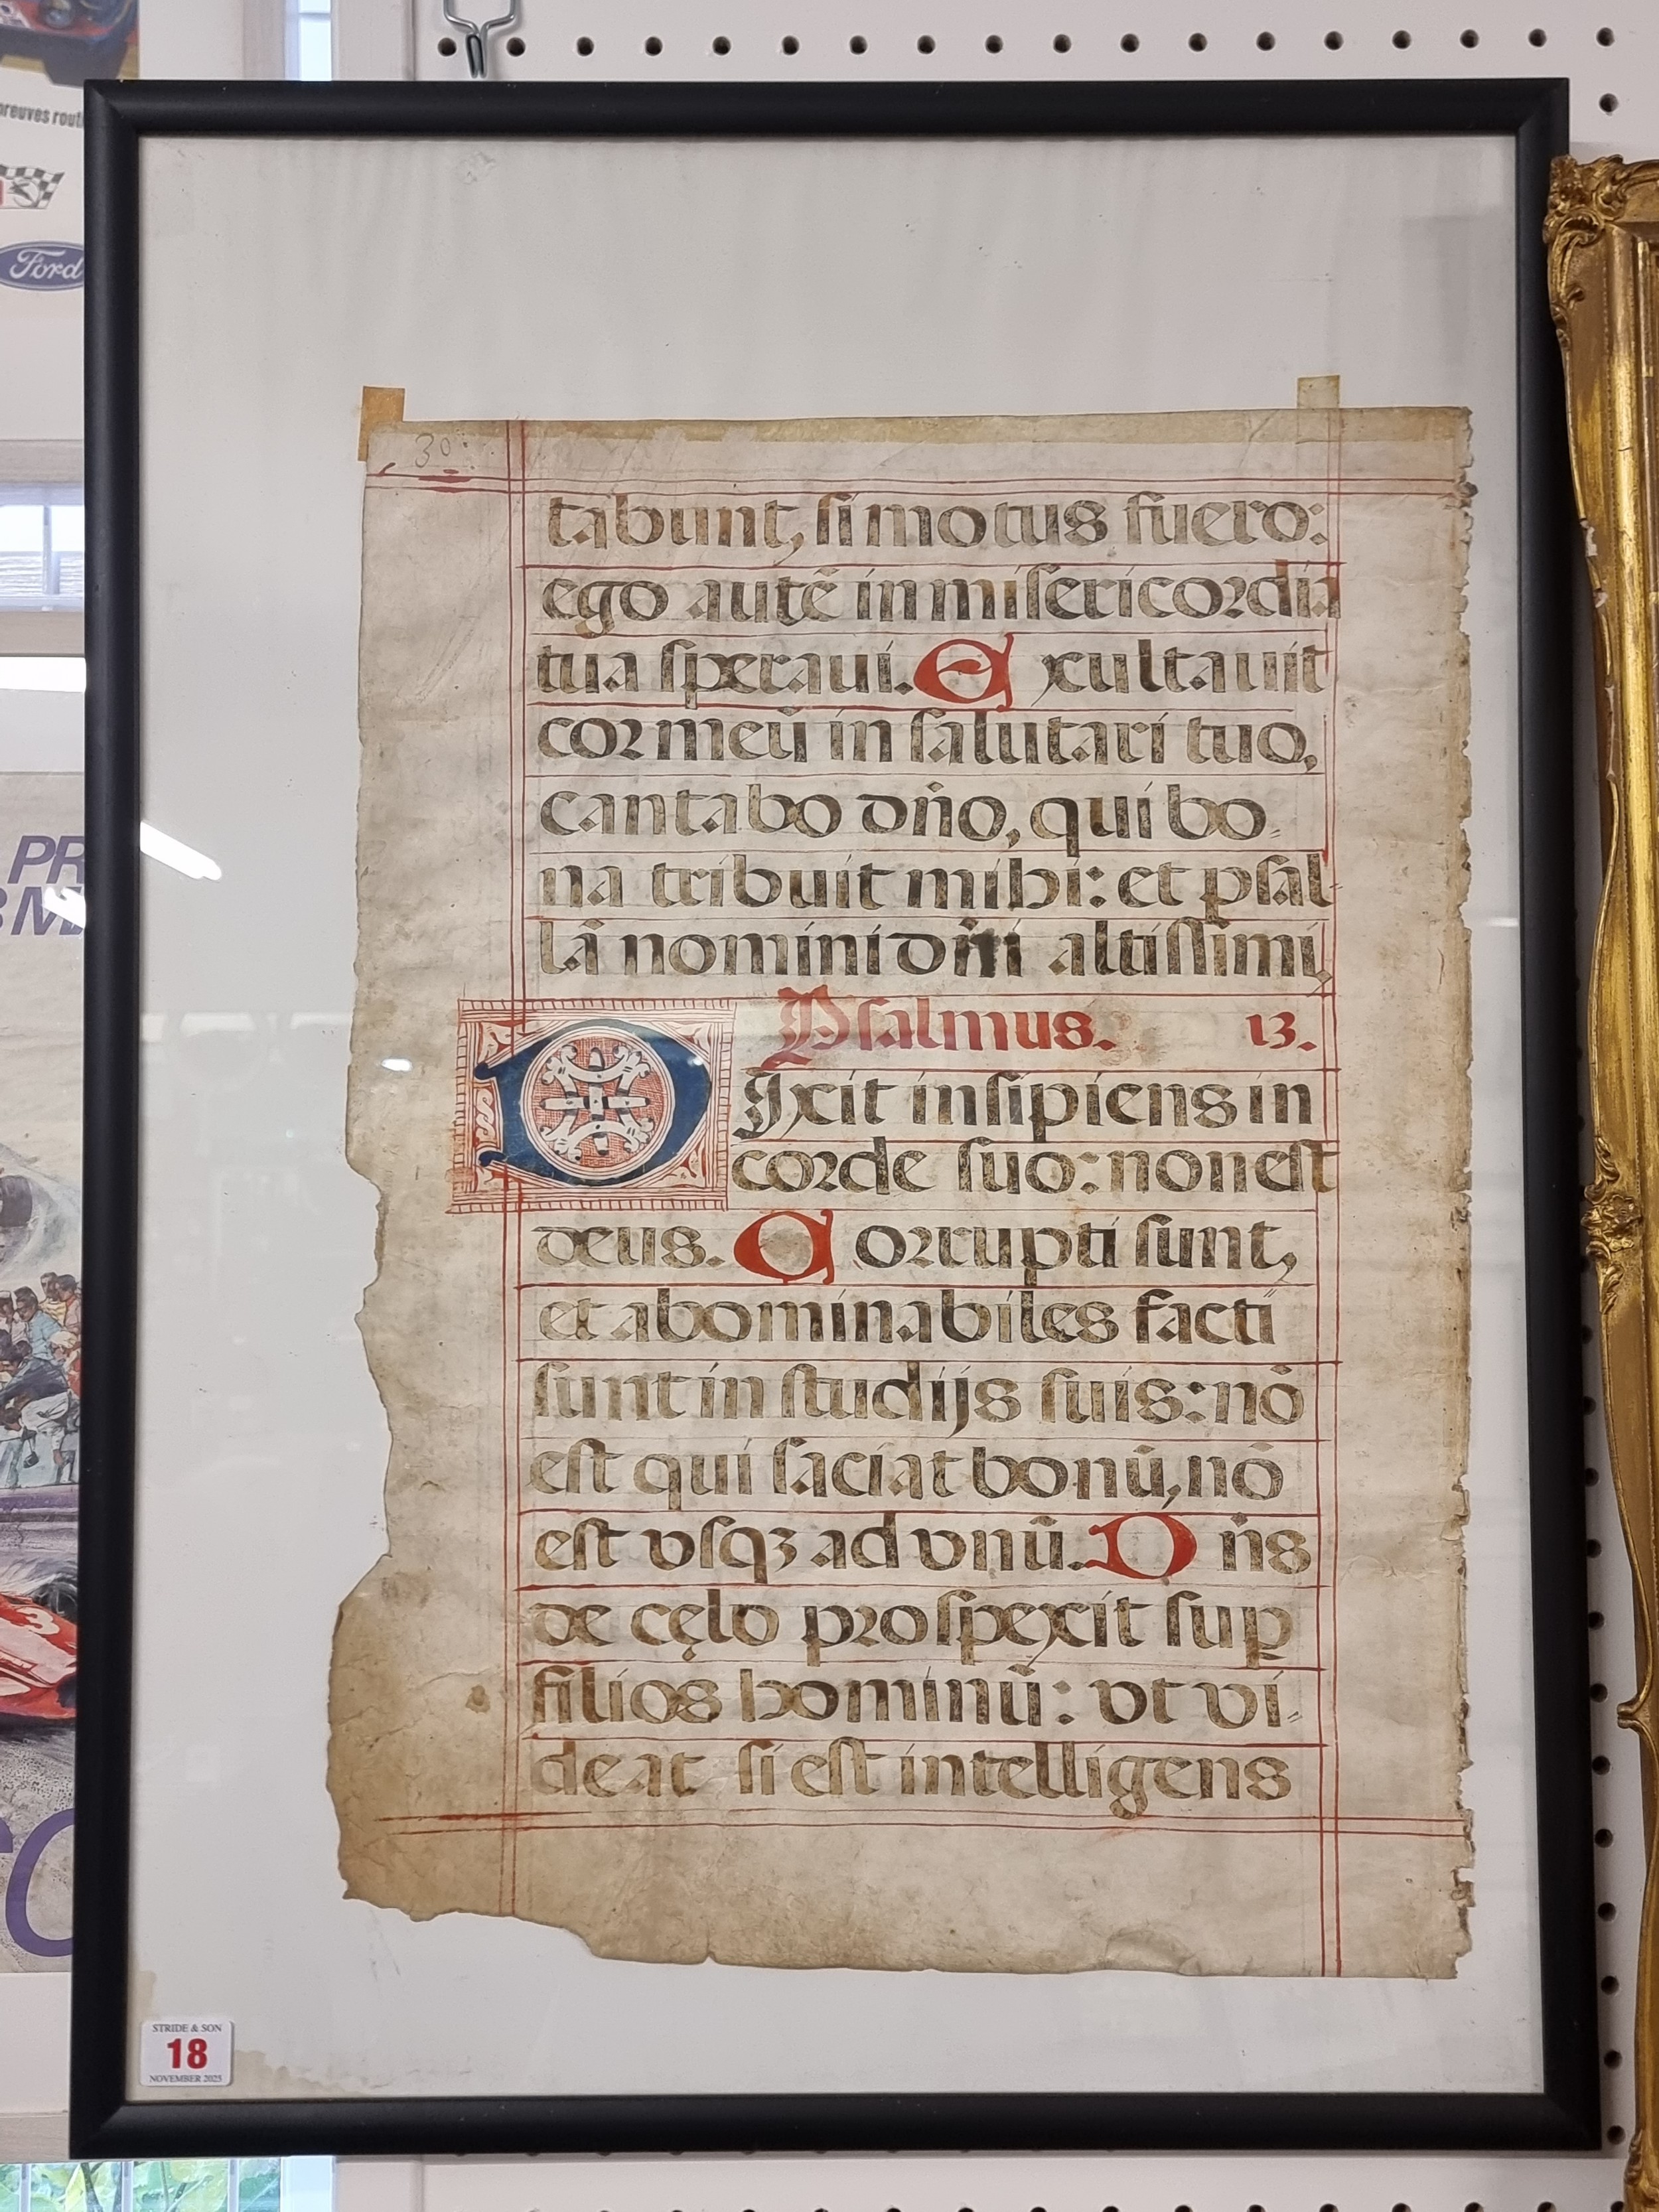 preuves rout
Ford
PR
30
tabunt, si motus fuero:
ego autẽ in misericordia
tua speraui. E xultauit
cor meũ in salutari tuo,
cantabo dño, qui bo-
na tribuit mihi: et psal-
lã nomini dñi altissimi,
Psalmus. 13.
DIxit insipiens in
corde suo: non est
deus. C orrupti sunt,
et abominabiles facti
sunt in studijs suis: nõ
est qui faciat bonũ, nõ
est vsqꝫ ad vnũ. D ñs
de cęlo prospexit sup
filios hominũ: vt vi-
deat si est intelligens
STRIDE & SON
18
NOVEMBER 2025